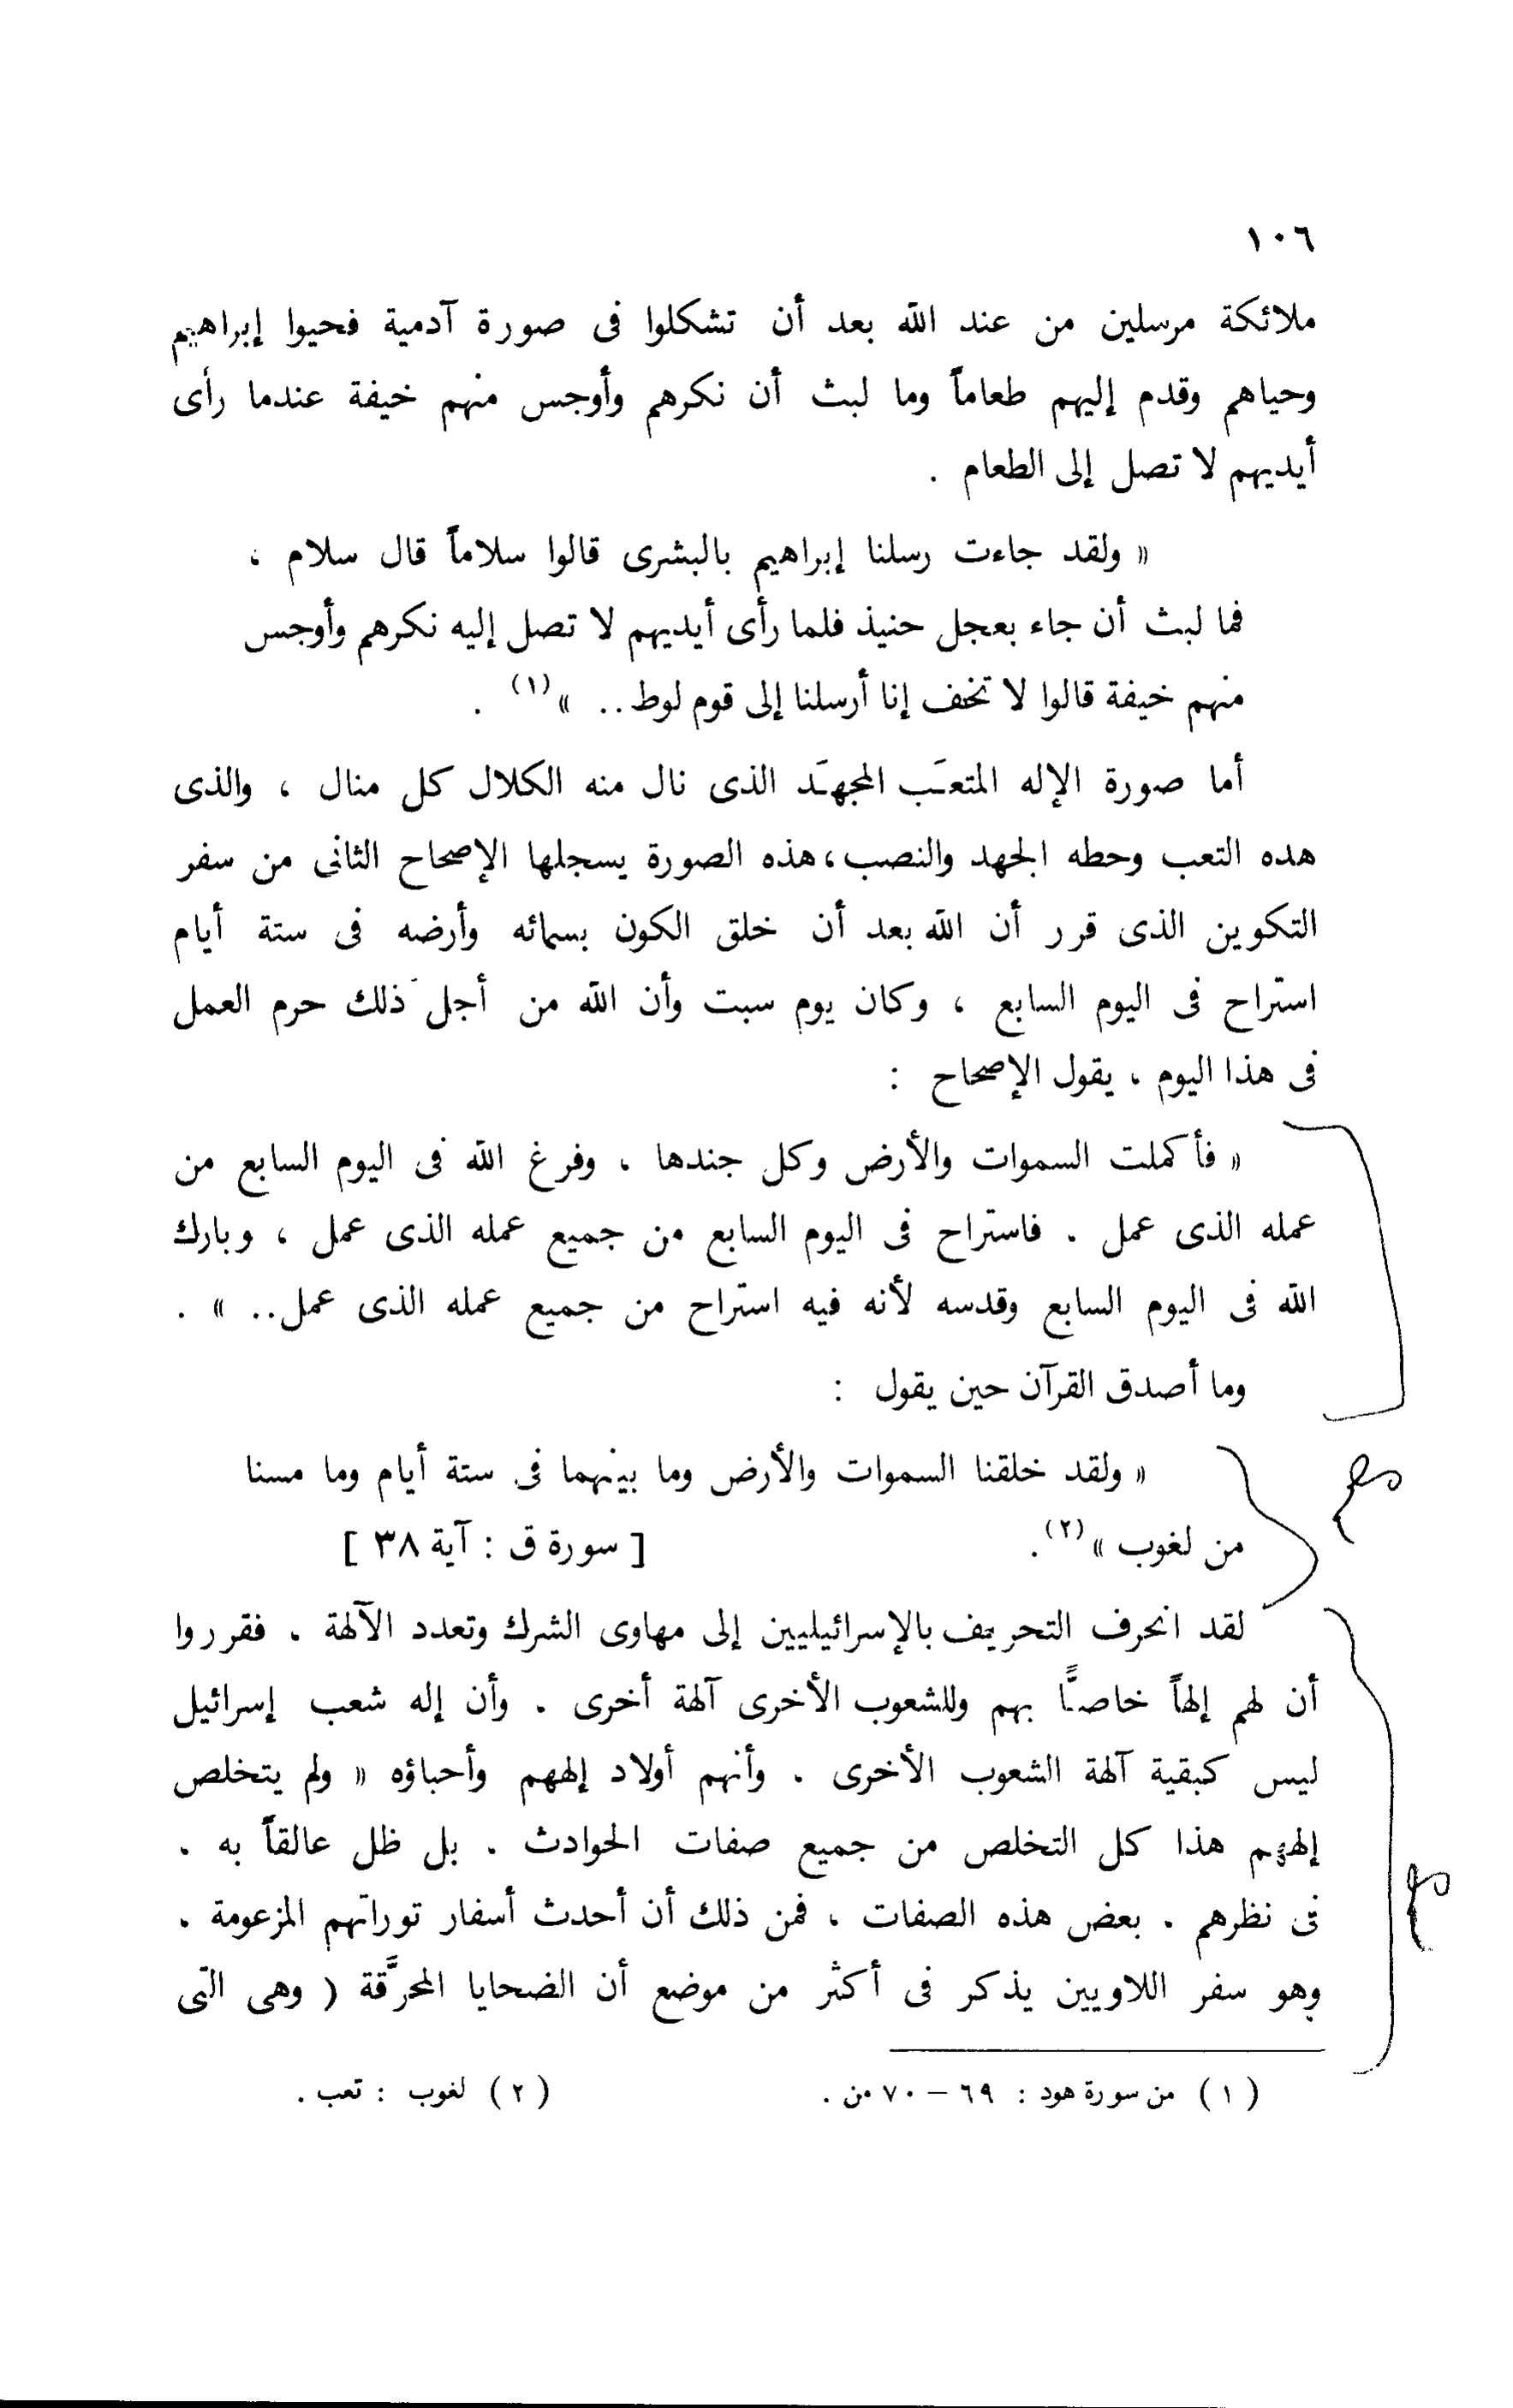 ١٠٦
ملائكة مرسلين من عند الله بعد أن تشكلوا فى صورة آدمية فحيوا إبراهيم
وحياهم وقدم إليهم طعاماً وما لبث أن نكرهم وأوجس منهم خيفة عندما رأى
أيديهم لا تصل إلى الطعام .
« ولقد جاءت رسلنا إبراهيم بالبشرى قالوا سلاماً قال سلام ،
فما لبث أن جاء بعجل حنيذ فلما رأى أيديهم لا تصل إليه نكرهم وأوجس
منهم خيفة قالوا لا تخف إنا أرسلنا إلى قوم لوط .. »(١) .
أما صورة الإله المتعَب المجهَد الذى نال منه الكلال كل منال ، والذى
هده التعب وحطه الجهد والنصب ، هذه الصورة يسجلها الإصحاح الثانى من سفر
التكوين الذى قرر أن الله بعد أن خلق الكون بسمائه وأرضه فى ستة أيام
استراح فى اليوم السابع ، وكان يوم سبت وأن الله من أجل ذلك حرم العمل
فى هذا اليوم ، يقول الإصحاح :
« فأكملت السموات والأرض وكل جندها ، وفرغ الله فى اليوم السابع من
عمله الذى عمل . فاستراح فى اليوم السابع من جميع عمله الذى عمل ، وبارك
الله فى اليوم السابع وقدسه لأنه فيه استراح من جميع عمله الذى عمل .. » .
وما أصدق القرآن حين يقول :
« ولقد خلقنا السموات والأرض وما بينهما فى ستة أيام وما مسنا
من لغوب »(٢) . [ سورة ق : آية ٣٨ ]
لقد انحرف التحريف بالإسرائيليين إلى مهاوى الشرك وتعدد الآلهة . فقرروا
أن لهم إلهاً خاصًّا بهم وللشعوب الأخرى آلهة أخرى . وأن إله شعب إسرائيل
ليس كبقية آلهة الشعوب الأخرى . وأنهم أولاد إلههم وأحباؤه « ولم يتخلص
إلههم هذا كل التخلص من جميع صفات الحوادث . بل ظل عالقاً به .
فى نظرهم . بعض هذه الصفات ، فمن ذلك أن أحدث أسفار توراتهم المزعومة .
وهو سفر اللاويين يذكر فى أكثر من موضع أن الضحايا المحرَّقة ( وهى التى
( ١ ) من سورة هود : ٦٩ – ٧٠ من . ( ٢ ) لغوب : تعب .